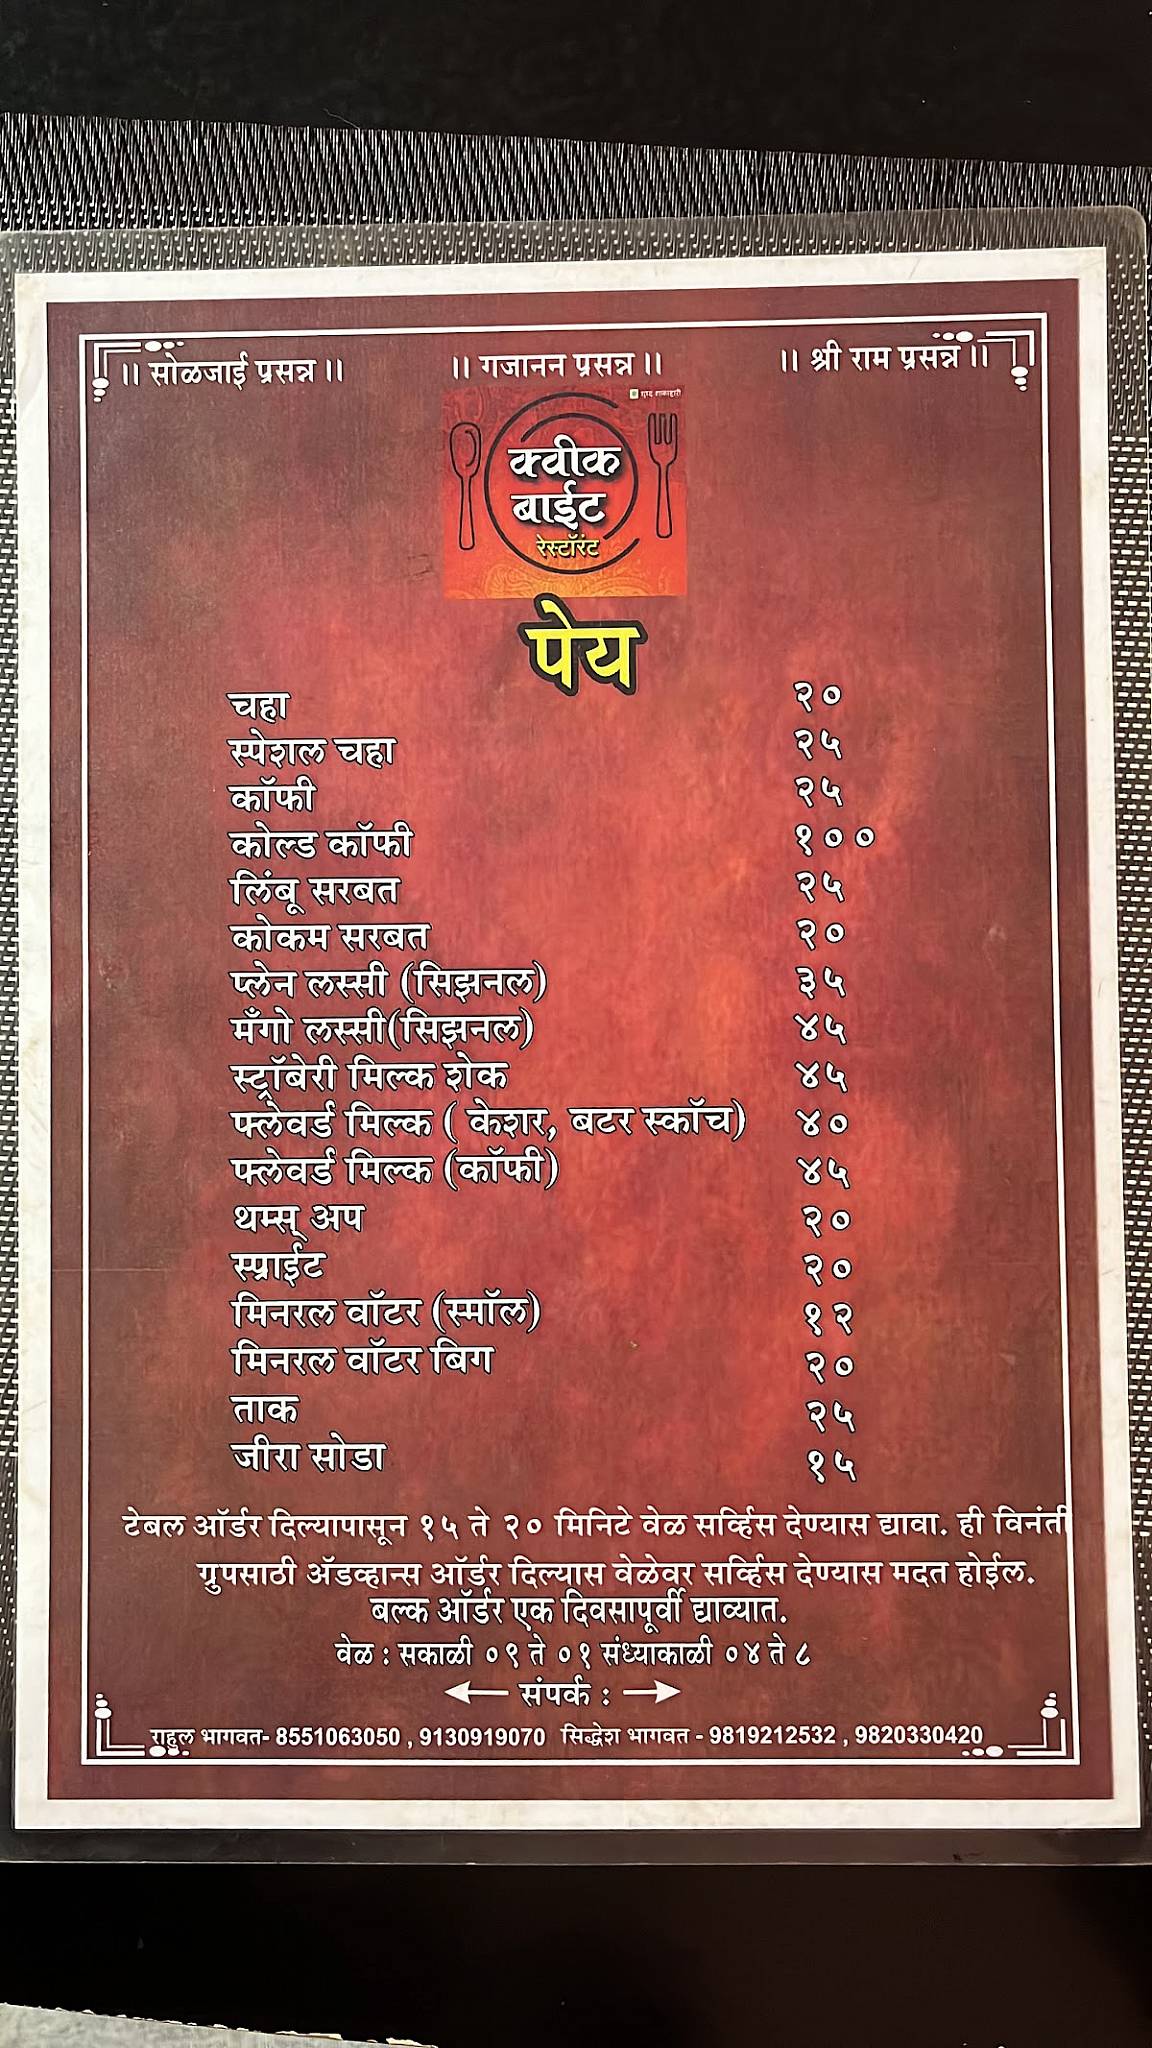 ॥ सोळजाई प्रसन्न ॥ ॥ गजानन प्रसन्न ॥ ॥ श्री राम प्रसन्न ॥
शुध्द शाकाहारी
क्वीक
बाईट
रेस्टॉरंट
पेय
चहा २०
स्पेशल चहा २५
कॉफी २५
कोल्ड कॉफी १००
लिंबू सरबत २५
कोकम सरबत २०
प्लेन लस्सी (सिझनल) ३५
मँगो लस्सी(सिझनल) ४५
स्ट्रॉबेरी मिल्क शेक ४५
फ्लेवर्ड मिल्क ( केशर, बटर स्कॉच) ४०
फ्लेवर्ड मिल्क (कॉफी) ४५
थम्स् अप २०
स्प्राईट २०
मिनरल वॉटर (स्मॉल) १२
मिनरल वॉटर बिग २०
ताक २५
जीरा सोडा १५
टेबल ऑर्डर दिल्यापासून १५ ते २० मिनिटे वेळ सर्व्हिस देण्यास द्यावा. ही विनंती
ग्रुपसाठी ॲडव्हान्स ऑर्डर दिल्यास वेळेवर सर्व्हिस देण्यास मदत होईल.
बल्क ऑर्डर एक दिवसापूर्वी द्याव्यात.
वेळ : सकाळी ०९ ते ०१ संध्याकाळी ०४ ते ८
संपर्क :
राहुल भागवत- 8551063050 , 9130919070 सिद्धेश भागवत - 9819212532 , 9820330420